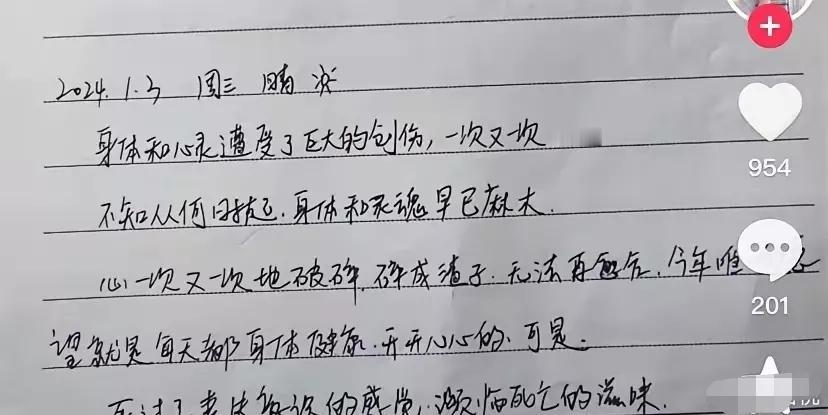 2024.1.3 周三 晴
身体和心灵遭受了巨大的创伤,一次又一次
不知从何日起,身体和灵魂早已麻木.
心一次又一次地破碎,碎成渣子.无法再愈合.今年唯
望就是每天都身体健康.开开心心的.可是.
的感觉,濒临死亡的滋味.
954
201